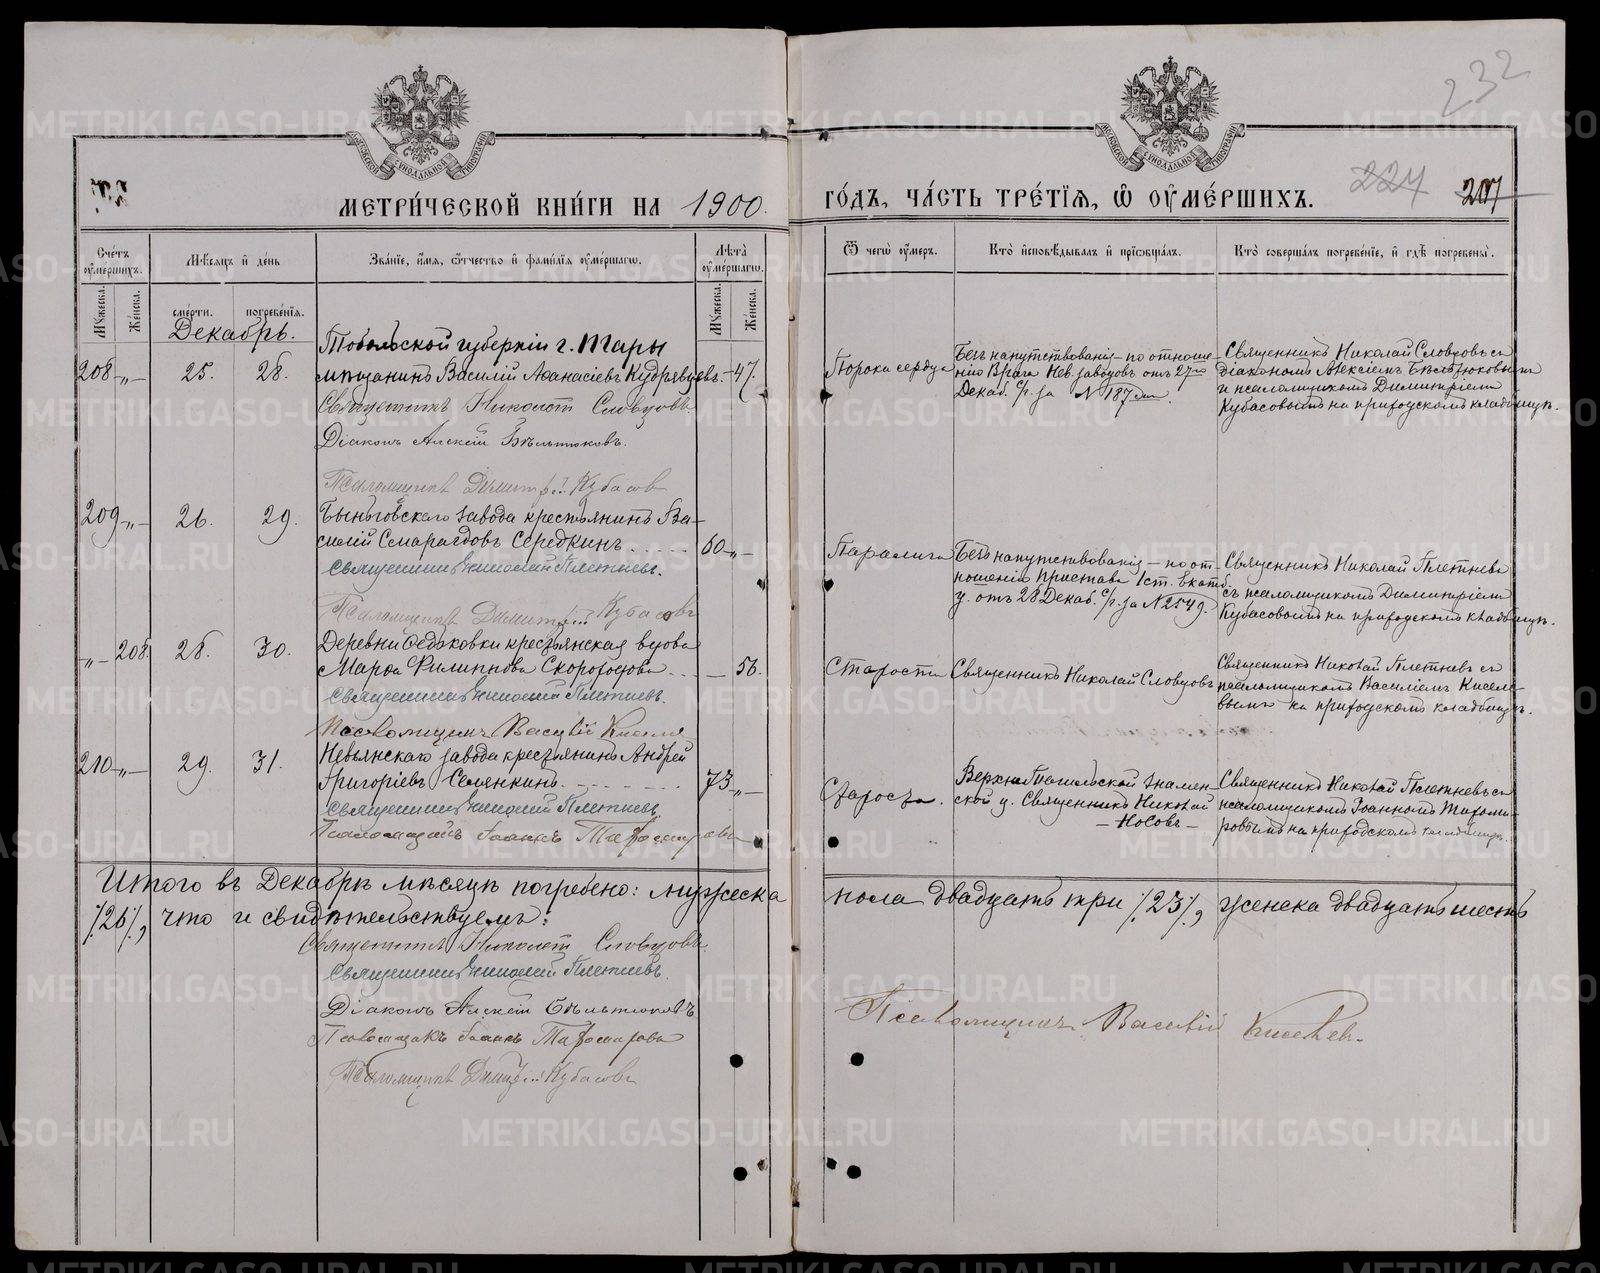 232
МЕТРИ́ЧЕСКОЙ КНИ́ГИ НА 1900.
ГО́ДЪ, ЧА́СТЬ ТРЕ́ТІЯ, Ѡ ОУМЕ́РШИХЪ.
224 207
Сче́тъ оуме́ршихъ.
Мѣ́сяцъ и де́нь
Зва́ніе, и́мя, ѻ́тчество и фами́лія оуме́ршагѡ.
Лѣта̀ оуме́ршагѡ.
Ѿ чегѡ̀ оу́меръ.
Кто̀ и́сповѣ́дывалъ и прїѡбща́лъ.
Кто̀ соверша́лъ погребе́ніе, и гдѣ̀ погребены̀.
Му́жеска. Же́нска. сме́рти. погребе́нія. Му́жеска. Же́нска.
Декабрь.
Тобольской губерніи г. Тары
208 -„- 25. 28. мѣщанинъ Василій Аѳанасіевъ Кудрявцевъ. - 47.
Священникъ Николай Словцовъ.
Діаконъ Алексій Бѣльтюковъ.
Псаломщикъ Димитрій Кубасовъ
Порока сердца
Безъ напутствованія - по отноше-
нію Врача Нев. заводовъ отъ 27го
Декаб. с/г. за № 187
Священникъ Николай Словцовъ съ
діакономъ Алексіемъ Бѣльтюковымъ
и псаломщикомъ Димитріемъ
Кубасовымъ на приходскомъ кладбищѣ.
209 -„- 26. 29. Быньговскаго завода крестьянинъ Ва-
силій Смарагдовъ Середкинъ..... 60 -„-
Священникъ Николай Плетневъ.
Псаломщикъ Димитрій Кубасовъ
Паралича
Безъ напутствованія - по от-
ношенію Пристава 1 ст. Екатб.
у. отъ 28 Декаб. с/г. за № 2549.
Священникъ Николай Плетневъ
съ псаломщикомъ Димитріемъ
Кубасовымъ на приходскомъ кладбищѣ.
-„- 208. 28. 30. Деревни Ѳедьковки крестьянская вдова
Марѳа Филиппова Скороходова... - 56.
Священникъ Николай Плетневъ.
Псаломщикъ Василій Киселев
Старости
Священникъ Николай Словцовъ
Священникъ Николай Плетневъ съ
псаломщикомъ Василіемъ Киселе-
вымъ на приходскомъ кладбищѣ.
210 -„- 29. 31. Невьянскаго завода крестьянинъ Андрей
Григоріевъ Семянкинъ........ 73 -„-
Священникъ Николай Плетневъ
Псаломщикъ Іоаннъ Тихомировъ
Старости.
Верхне Тагильской Знамен-
ской ц. Священникъ Николай
- Носовъ -
Священникъ Николай Плетневъ съ
псаломщикомъ Іоанномъ Тихоми-
ровымъ на приходскомъ кладбищѣ.
Итого въ Декабрѣ мѣсяцѣ погребено: мужеска пола двадцать три /23/, женска двадцать шесть
/26/, что и свидѣтельствуемъ:
Священникъ Николай Словцовъ.
Священникъ Николай Плетневъ.
Діаконъ Алексій Бѣльтюковъ
Псаломщикъ Іоаннъ Тихомировъ
Псаломщикъ Димитрій Кубасовъ
Псаломщикъ Василій Киселев.